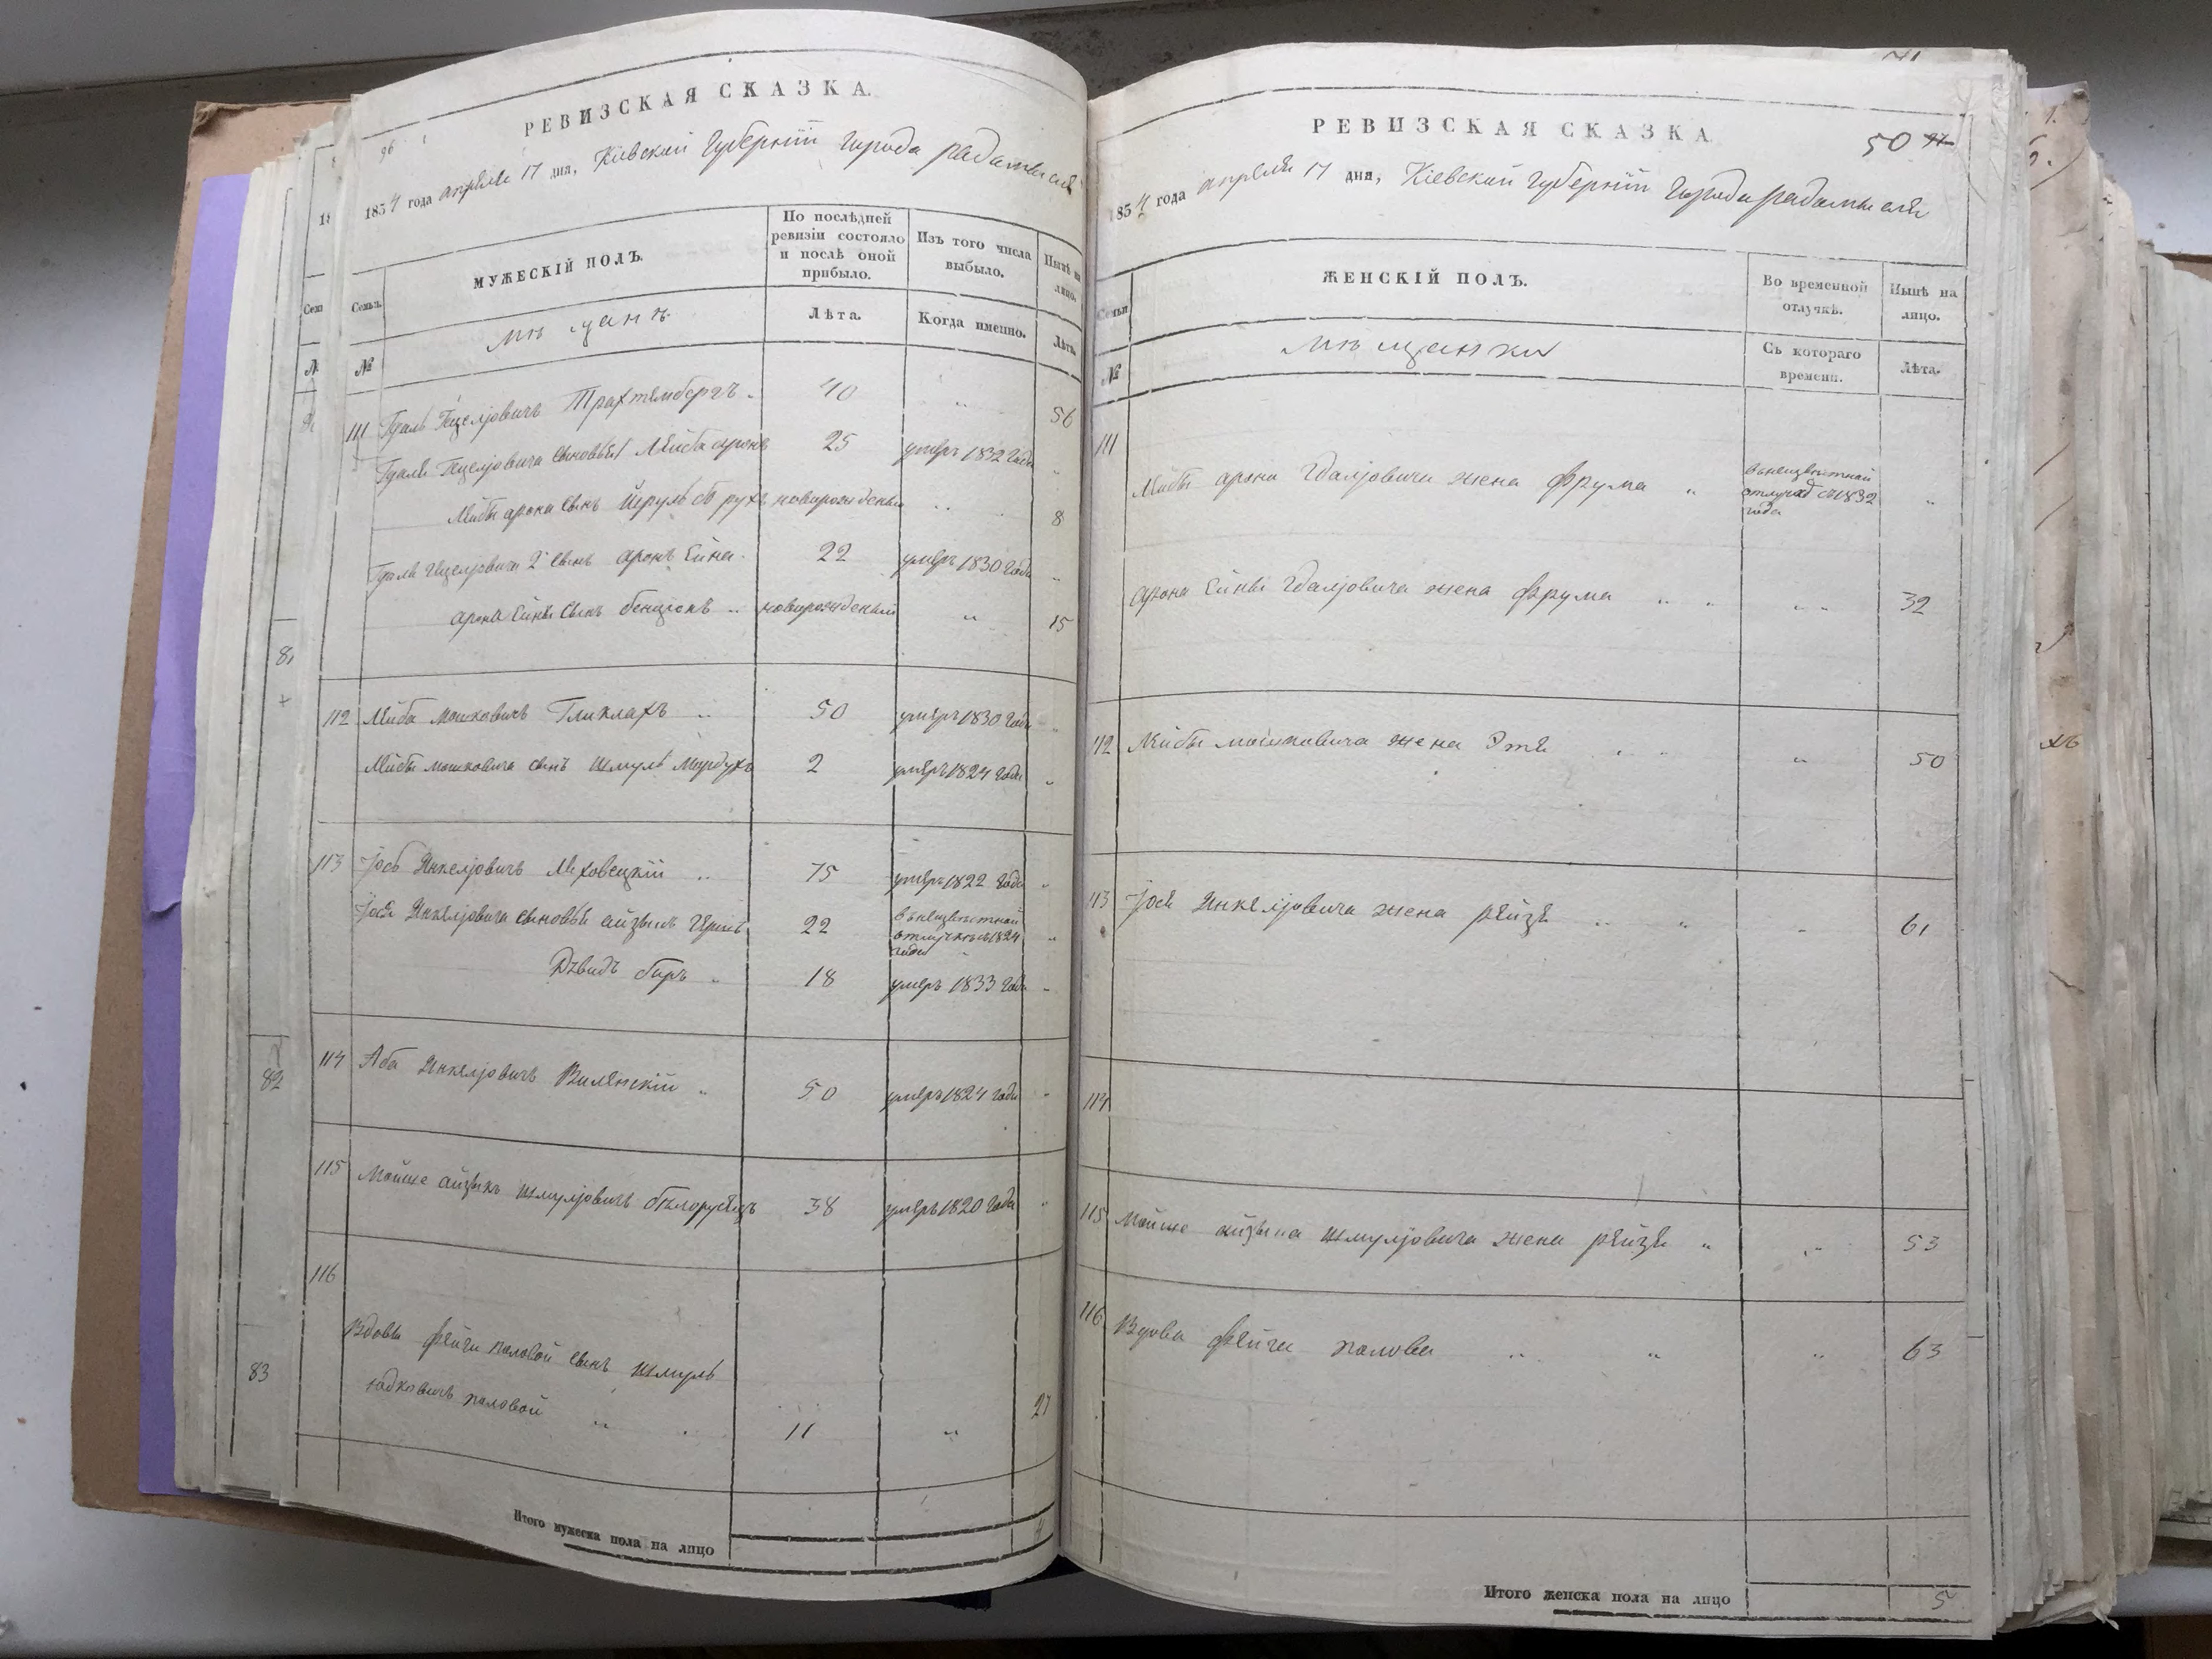 РЕВИЗСКАЯ СКАЗКА.
96
1834 года апреля 17 дня, Кіевской Губерніи города радамысля
Семьи.
МУЖЕСКІЙ ПОЛЪ.
По послѣдней ревизіи состояло и послѣ оной прибыло.
Изъ того числа выбыло.
Нынѣ на лицо.
№
мѣщанъ
Лѣта.
Когда именно.
Лѣта.
111 Гдаль Гецеліовичъ Трахтемберхъ 40 „ 56
Гдаля Гецеліовича сыновья 1 Лейба аронъ 25 умеръ 1832 года „
Лейбы арона сынъ Йруль новорожденый „ 8
Гдаля Гецеліовича 2 сынъ аронъ Ейна 22 умеръ 1830 года „
арона Ейны сынъ бенціонъ „ новорожденый „ 15
112 Лейба мошковичъ Гликлахъ „ 50 умеръ 1830 года „
Лейбы мошковича сынъ шмуль Мордухъ 2 умеръ 1824 года „
113 Іось Янкеліовичъ Леховецкій „ 75 умеръ 1822 года „
Іося Янкеліовича сыновья айзыкъ Гершъ 22 в неизвѣстной отлучкѣ съ 1824 года „
Дѣвидъ беръ „ 18 умеръ 1833 года „
114 Аба Янкеліовичъ Виленскій „ 50 умеръ 1824 года „
115 Мойше айзыкъ шмуліовичъ бѣлорусецъ 38 умеръ 1820 года „
116
Вдовы фейги половой сынъ шмуль
юдковичъ половой „ 11 „ 27
Итого мужеска пола на лицо 4
81
82
83
РЕВИЗСКАЯ СКАЗКА
50
1834 года апреля 17 дня, Кіевской Губерніи города радамысля
Семьи
ЖЕНСКІЙ ПОЛЪ.
Во временной отлучкѣ.
Нынѣ на лицо.
№
мѣщанки
Съ котораго времени.
Лѣта.
111
Лейбы арона Гдаліовича жена Фрума „ в неизвѣстной отлучкѣ с 1832 года „
арона Ейны Гдаліовича жена Фрума „ „ „ 32
112 Лейбы мошковича жена Этя „ 50
113 Іося Янкеліовича жена рейзя „ „ „ 61
114
115 Мойше айзыка шмуліовича жена рейзя „ „ 53
116 Вдова фейга полова „ „ „ 63
Итого женска пола на лицо 5